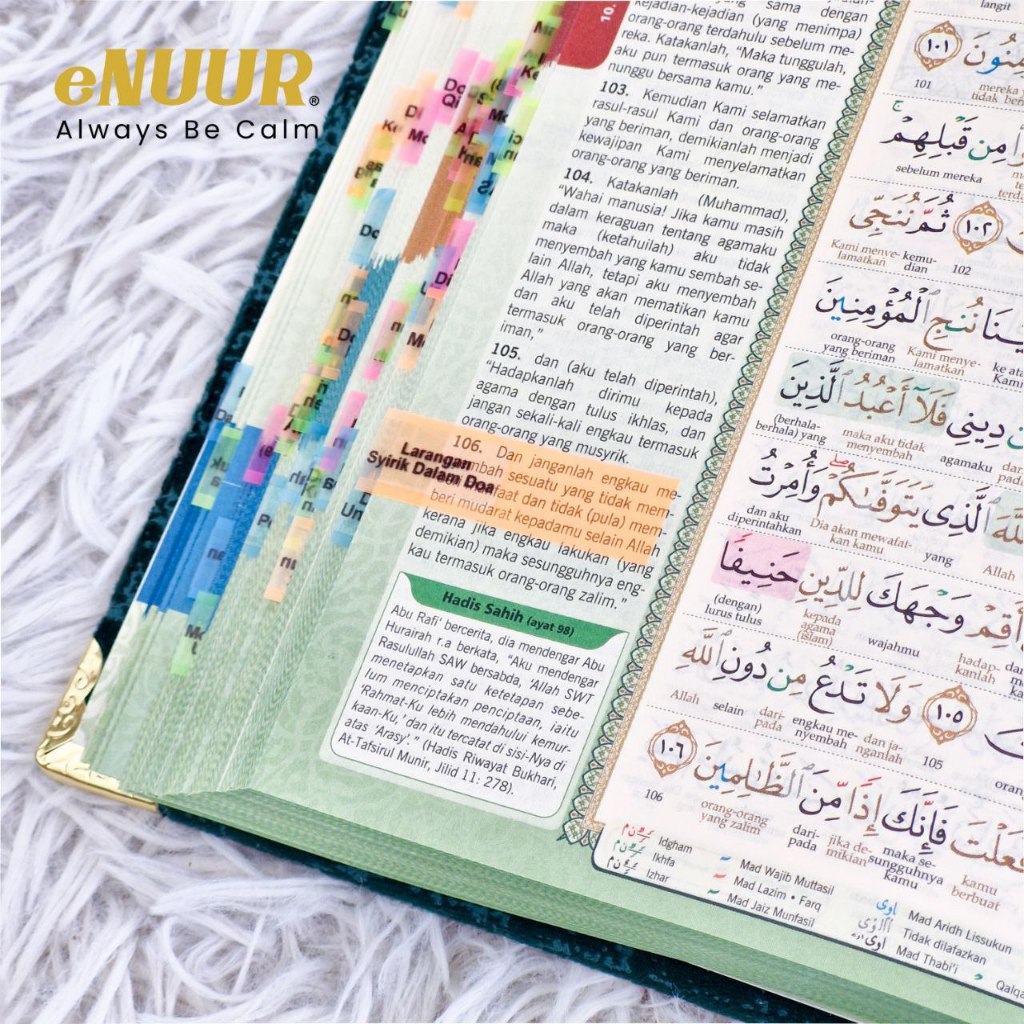 eNUUR®
Always Be Calm
10.
sama dengan
kejadian-kejadian (yang menimpa)
orang-orang terdahulu sebelum me-
reka. Katakanlah, "Maka tunggulah,
aku pun termasuk orang yang me-
nunggu bersama kamu."
103. Kemudian Kami selamatkan
rasul-rasul Kami dan orang-orang
yang beriman, demikianlah menjadi
kewajipan Kami menyelamatkan
orang-orang yang beriman.
104. Katakanlah (Muhammad),
"Wahai manusia! Jika kamu masih
dalam keraguan tentang agamaku
maka (ketahuilah) aku tidak
menyembah yang kamu sembah se-
lain Allah, tetapi aku menyembah
Allah yang akan mematikan kamu
dan aku telah diperintah agar
termasuk orang-orang yang ber-
iman,"
105. dan (aku telah diperintah),
"Hadapkanlah dirimu kepada
agama dengan tulus ikhlas, dan
jangan sekali-kali engkau termasuk
orang-orang yang musyrik.
Larangan
Syirik Dalam Doa
106. Dan janganlah engkau me-
mbah sesuatu yang tidak mem-
faat dan tidak (pula) mem-
beri mudarat kepadamu selain Allah
kerana jika engkau lakukan (yang
demikian) maka sesungguhnya eng-
kau termasuk orang-orang zalim."
Hadis Sahih (ayat 98)
Abu Rafi' bercerita, dia mendengar Abu
Hurairah r.a berkata, "Aku mendengar
Rasulullah SAW bersabda, 'Allah SWT
menetapkan satu ketetapan sebe-
lum menciptakan penciptaan, iaitu
'Rahmat-Ku lebih mendahului kemur-
kaan-Ku,' dan itu tercatat di sisi-Nya di
atas 'Arasy'." (Hadis Riwayat Bukhari,
At-Tafsirul Munir, Jilid 11: 278).
langit
١٠١
101
مِن قَبْلِهِمْ
sebelum mereka
ثُمَّ نُنَجِّى ١٠٢
Kami menye-lamatkan kemu-dian 102
نُنجِ ٱلْمُؤْمِنِينَ
orang-orang yang beriman Kami menye-lamatkan
دِينِى فَلَآ أَعْبُدُ ٱلَّذِينَ
(berhala-berhala) yang maka aku tidak menyembah agamaku
ٱلَّذِى يَتَوَفَّىٰكُمْ وَأُمِرْتُ
dan aku diperintahkan Dia akan mewafat-kan kamu yang Allah
أَقِمْ وَجْهَكَ لِلدِّينِ حَنِيفًا
(dengan) lurus tulus kepada agama (islam) wajahmu hadap-kanlah
١٠٥ وَلَا تَدْعُ مِن دُونِ ٱللَّهِ
Allah selain dari-pada engkau me-nyembah dan ja-nganlah 105
فَعَلْتَ فَإِنَّكَ إِذًا مِّنَ ٱلظَّٰلِمِينَ ١٠٦
106 orang-orang yang zalim dari-pada jika de-mikian maka se-sungguhnya kamu kamu berbuat
Idgham
Ikhfa
Izhar
Mad Wajib Muttasil
Mad Lazim • Farq
Mad Jaiz Munfasil
Mad Aridh Lissukun
Tidak dilafazkan
Mad Thabi'i